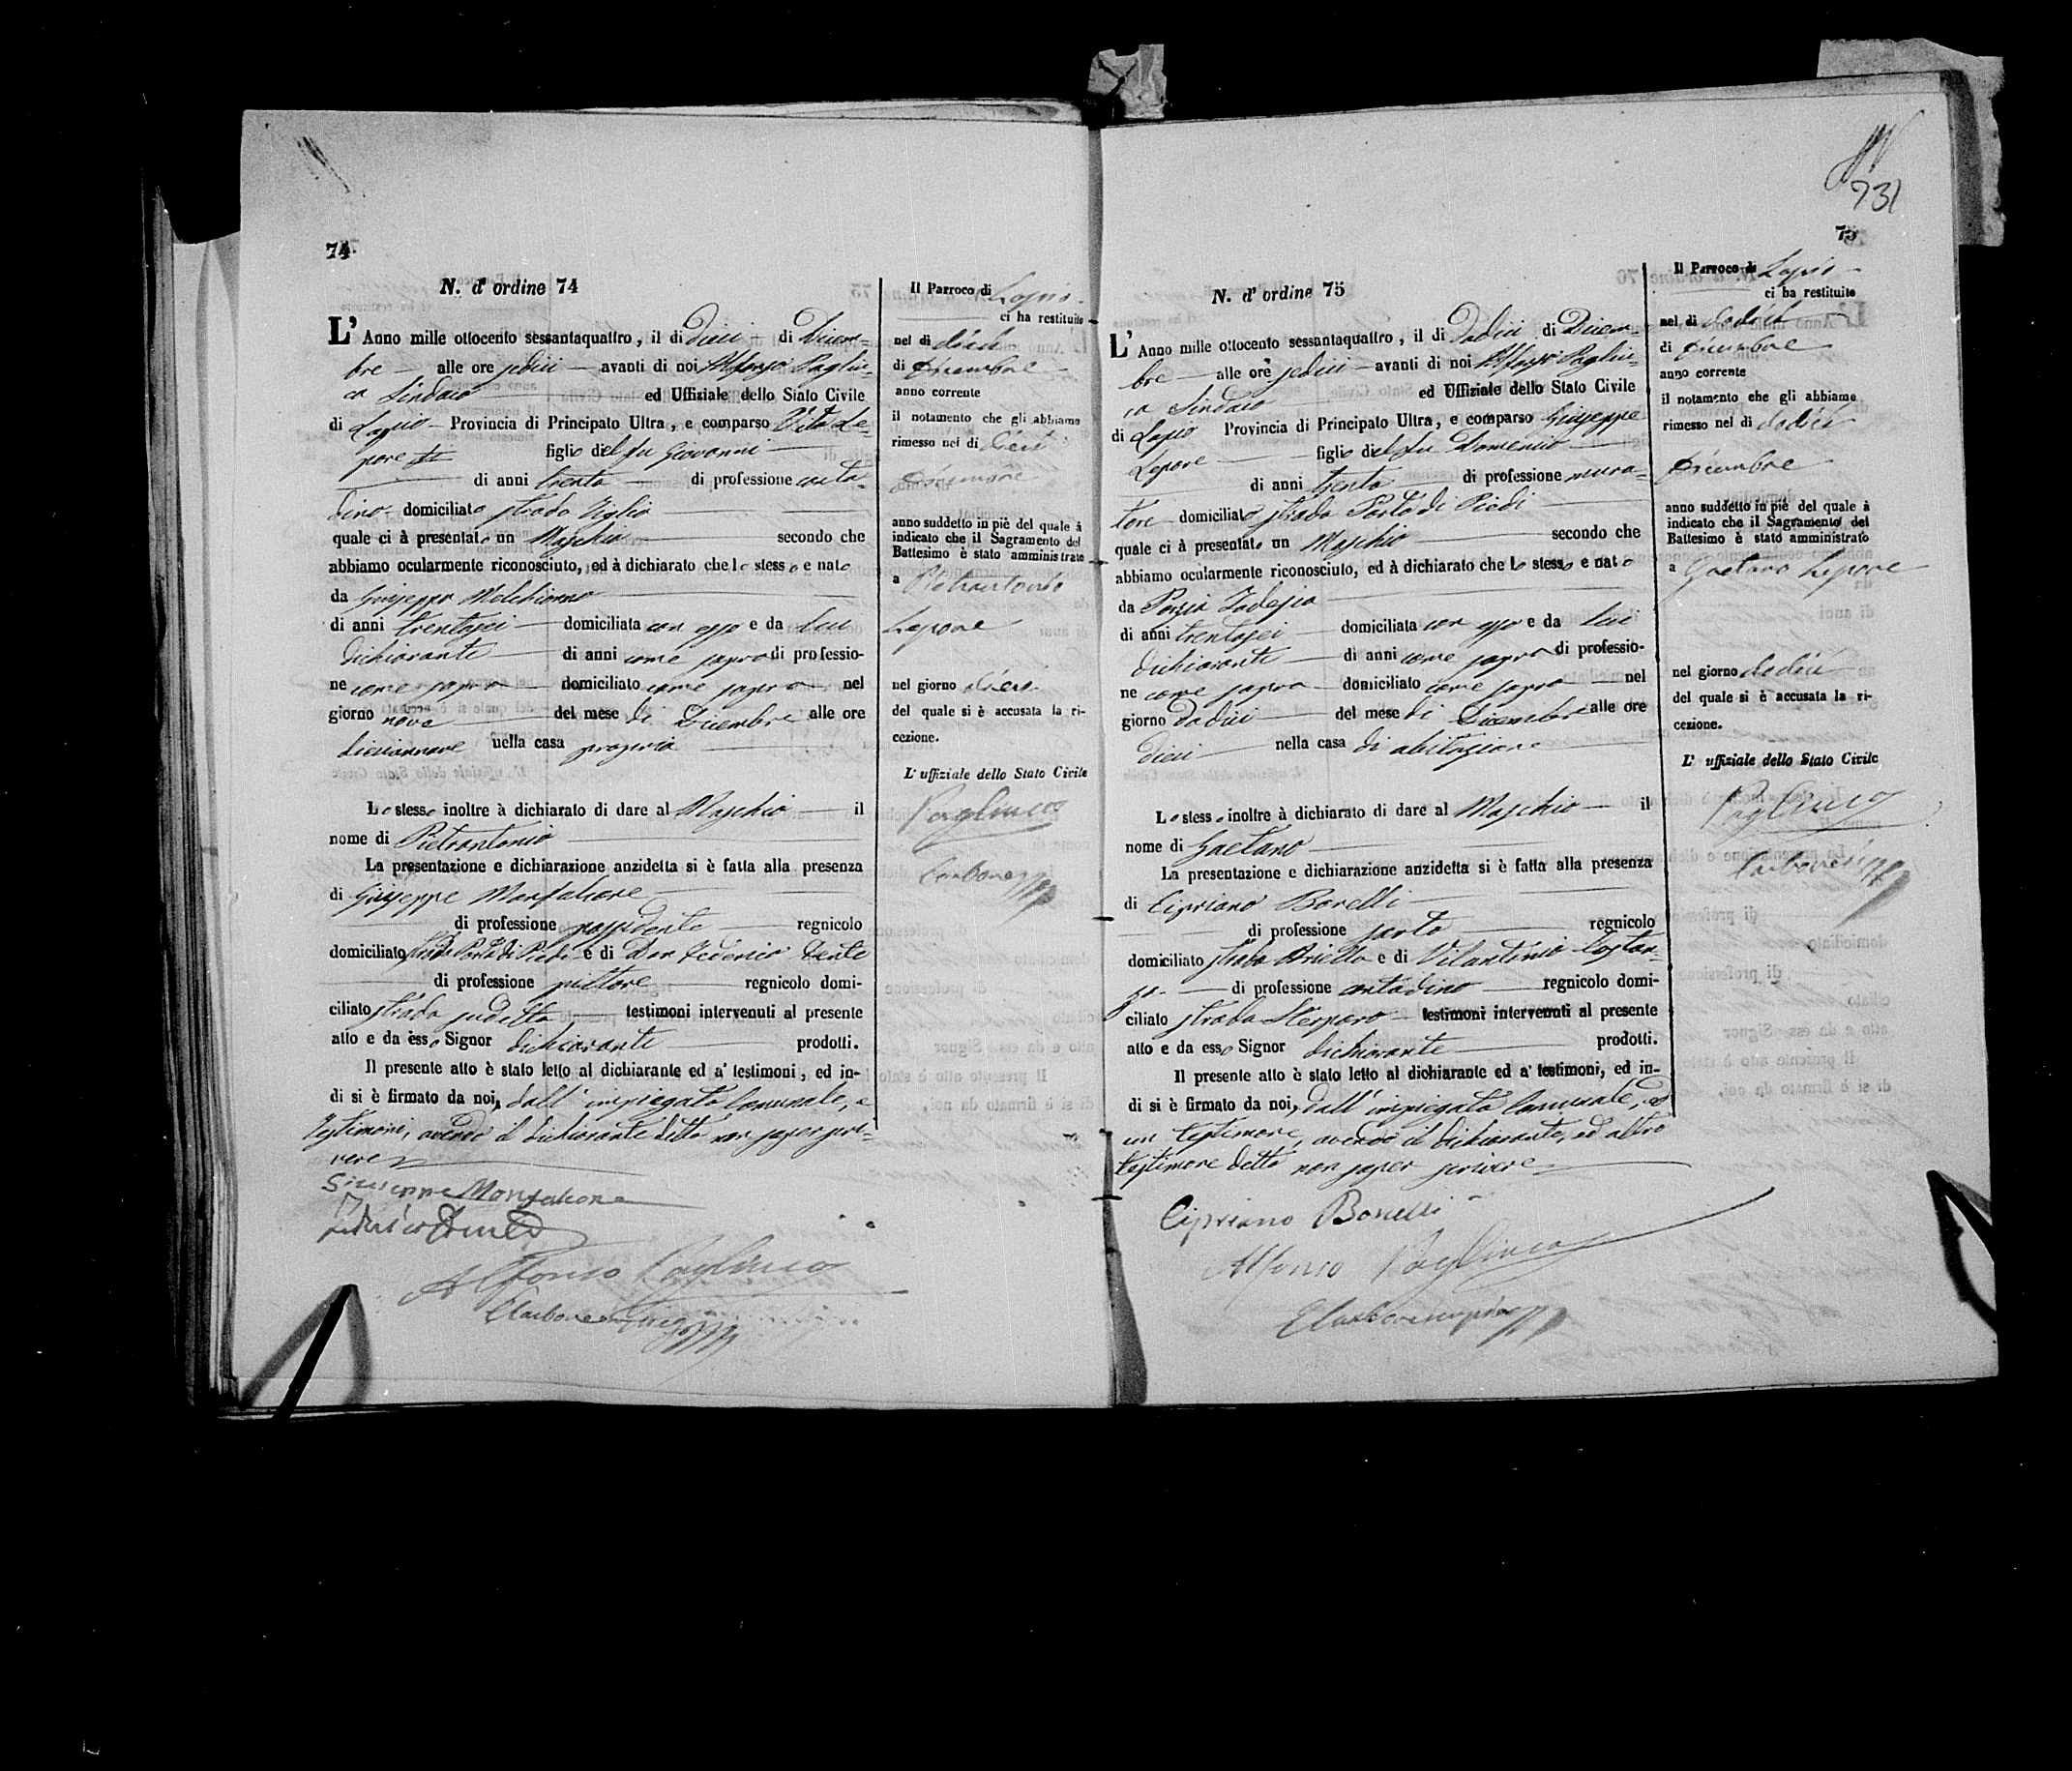 74
N. d' ordine 74
L' Anno mille ottocento sessantaquattro, il di dieci di Dicem-
bre alle ore sedici avanti di noi Alfonso Pagliu-
ca Sindaco ed Uffiziale dello Stato Civile
di Lapio Provincia di Principato Ultra, e comparso Vito Le-
pore figlio del fu Giovanni
di anni trenta di professione conta-
dino domiciliato strada Tiglio
quale ci à presentato un Maschio secondo che
abbiamo ocularmente riconosciuto, ed à dichiarato che lo stesso e nato
da Giuseppa Melchionno
di anni trentasei domiciliata con esso e da lui
dichiarante di anni come sopra di professio-
ne come sopra domiciliato come sopra nel
giorno nove del mese di Dicembre alle ore
diciannove nella casa propria
Lo stesso inoltre à dichiarato di dare al Maschio il
nome di Pietrantonio
La presentazione e dichiarazione anzidetta si è fatta alla presenza
di Giuseppe Monfalcone
di professione possidente regnicolo
domiciliato strada Porta di Piedi e di Don Federico Dente
di professione pittore regnicolo domi-
ciliato strada sudetta testimoni intervenuti al presente
atto e da esso Signor dichiarante prodotti.
Il presente atto è stato letto al dichiarante ed a' testimoni, ed in-
di si è firmato da noi, dall' impiegato Comunale, e
testimoni, avendo il dichiarante detto non saper scri-
vere
Giuseppe Monfalcone
Federico Dente
Alfonso Pagliuca
Il Parroco di Lapio
ci ha restituito
nel di dieci
di Dicembre
anno corrente
il notamento che gli abbiamo
rimesso nel di dieci
Dicembre
anno suddetto in piè del quale è
indicato che il Sagramento del
Battesimo è stato amministrato
a Pietrantonio
Lepore
nel giorno dieci
del quale si è accusata la ri-
cezione.
L' uffiziale dello Stato Civile
Pagliuca
731
75
N. d' ordine 75
L' Anno mille ottocento sessantaquattro, il di Dodici di Dicem-
bre alle ore sedici avanti di noi Alfonso Pagliu-
ca Sindaco ed Uffiziale dello Stato Civile
di Lapio Provincia di Principato Ultra, e comparso Giuseppe
Lepore figlio del fu Domenico
di anni trenta di professione mura-
tore domiciliato strada Porta di Piedi
quale ci à presentato un Maschio secondo che
abbiamo ocularmente riconosciuto, ed à dichiarato che lo stesso e nato
da Porzia
di anni trentasei domiciliata con esso e da lui
dichiarante di anni come sopra di professio-
ne come sopra domiciliato come sopra nel
giorno dodici del mese di Dicembre alle ore
dieci nella casa di abitazione
Lo stesso inoltre à dichiarato di dare al Maschio il
nome di Gaetano
La presentazione e dichiarazione anzidetta si è fatta alla presenza
di Cipriano Borelli
di professione sarto regnicolo
domiciliato strada Ariella e di Vitantonio Costan-
zo di professione contadino regnicolo domi-
ciliato strada Sterparo testimoni intervenuti al presente
atto e da esso Signor dichiarante prodotti.
Il presente atto è stato letto al dichiarante ed a' testimoni, ed in-
di si è firmato da noi, dall' impiegato Comunale, ed
un testimone, avendo il dichiarante, ed altro
testimone detto non saper scrivere
Cipriano Borelli
Alfonso Pagliuca
Il Parroco di Lapio
ci ha restituito
nel di dodici
di Dicembre
anno corrente
il notamento che gli abbiamo
rimesso nel di dodici
Dicembre
anno suddetto in piè del quale è
indicato che il Sagramento del
Battesimo è stato amministrato
a Gaetano Lepore
nel giorno dodici
del quale si è accusata la ri-
cezione.
L' uffiziale dello Stato Civile
Pagliuca